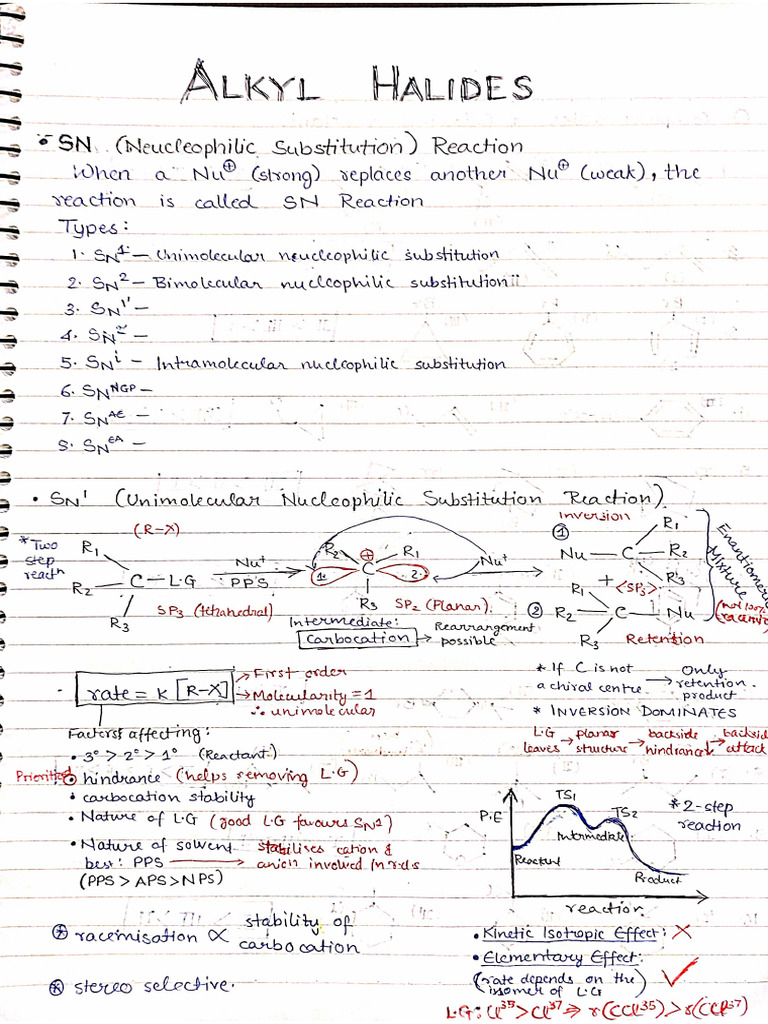 ALKYL HALIDES
• SN (Neucleophilic Substitution) Reaction
When a Nu⊕ (strong) replaces another Nu⊕ (weak), the
reaction is called SN Reaction
Types:
1. SN1 – Unimolecular neucleophilic substitution
2. SN2 – Bimolecular nucleophilic substitution
3. SN1' –
4. SN2' –
5. SNi – Intramolecular nucleophilic substitution
6. SNNGP –
7. SNAE –
8. SNEA –
• SN1 (Unimolecular Nucleophilic Substitution Reaction)
*Two step reactn
(R-X)
R1
R2 C – L.G
R3
SP3 (tetrahedral)
Nu+
PPS
R2 ⊕ R1
1. C 2.
R3 SP2 (Planar).
Intermediate:
carbocation → Rearrangement possible
Nu+
Inversion
①
R1
Nu – C – R2
R3
+ <SP3>
②
R1
R2 – C – Nu
R3
Retention
Enantiomeric Mixture
(not 100% racemic
rate = k [R-X]
→ First order
→ Molecularity = 1
∴ unimolecular
* If C is not a chiral centre → Only retention product
* INVERSION DOMINATES
L.G leaves → planar structure → backside hindrance↓ → backside attack
Factors affecting:
• 3° > 2° > 1° (Reactant)
Prioritised hindrance (helps removing L.G)
• carbocation stability
• Nature of L.G (good L.G favours SN1)
• Nature of solvent
best: PPS → stabilises cation & anion involved in r.d.s
(PPS > APS > NPS)
P.E
TS1
TS2
Intermediate
Reactant
Product
reaction
* 2-step reaction
⊛ racemisation ∝ stability of carbocation
⊛ stereo selective.
• Kinetic Isotropic Effect: X
• Elementary Effect: ✓
(rate depends on the isomer of L.G)
L.G: Cl35 > Cl37 ⇒ r(CCl35) > r(CCl37)